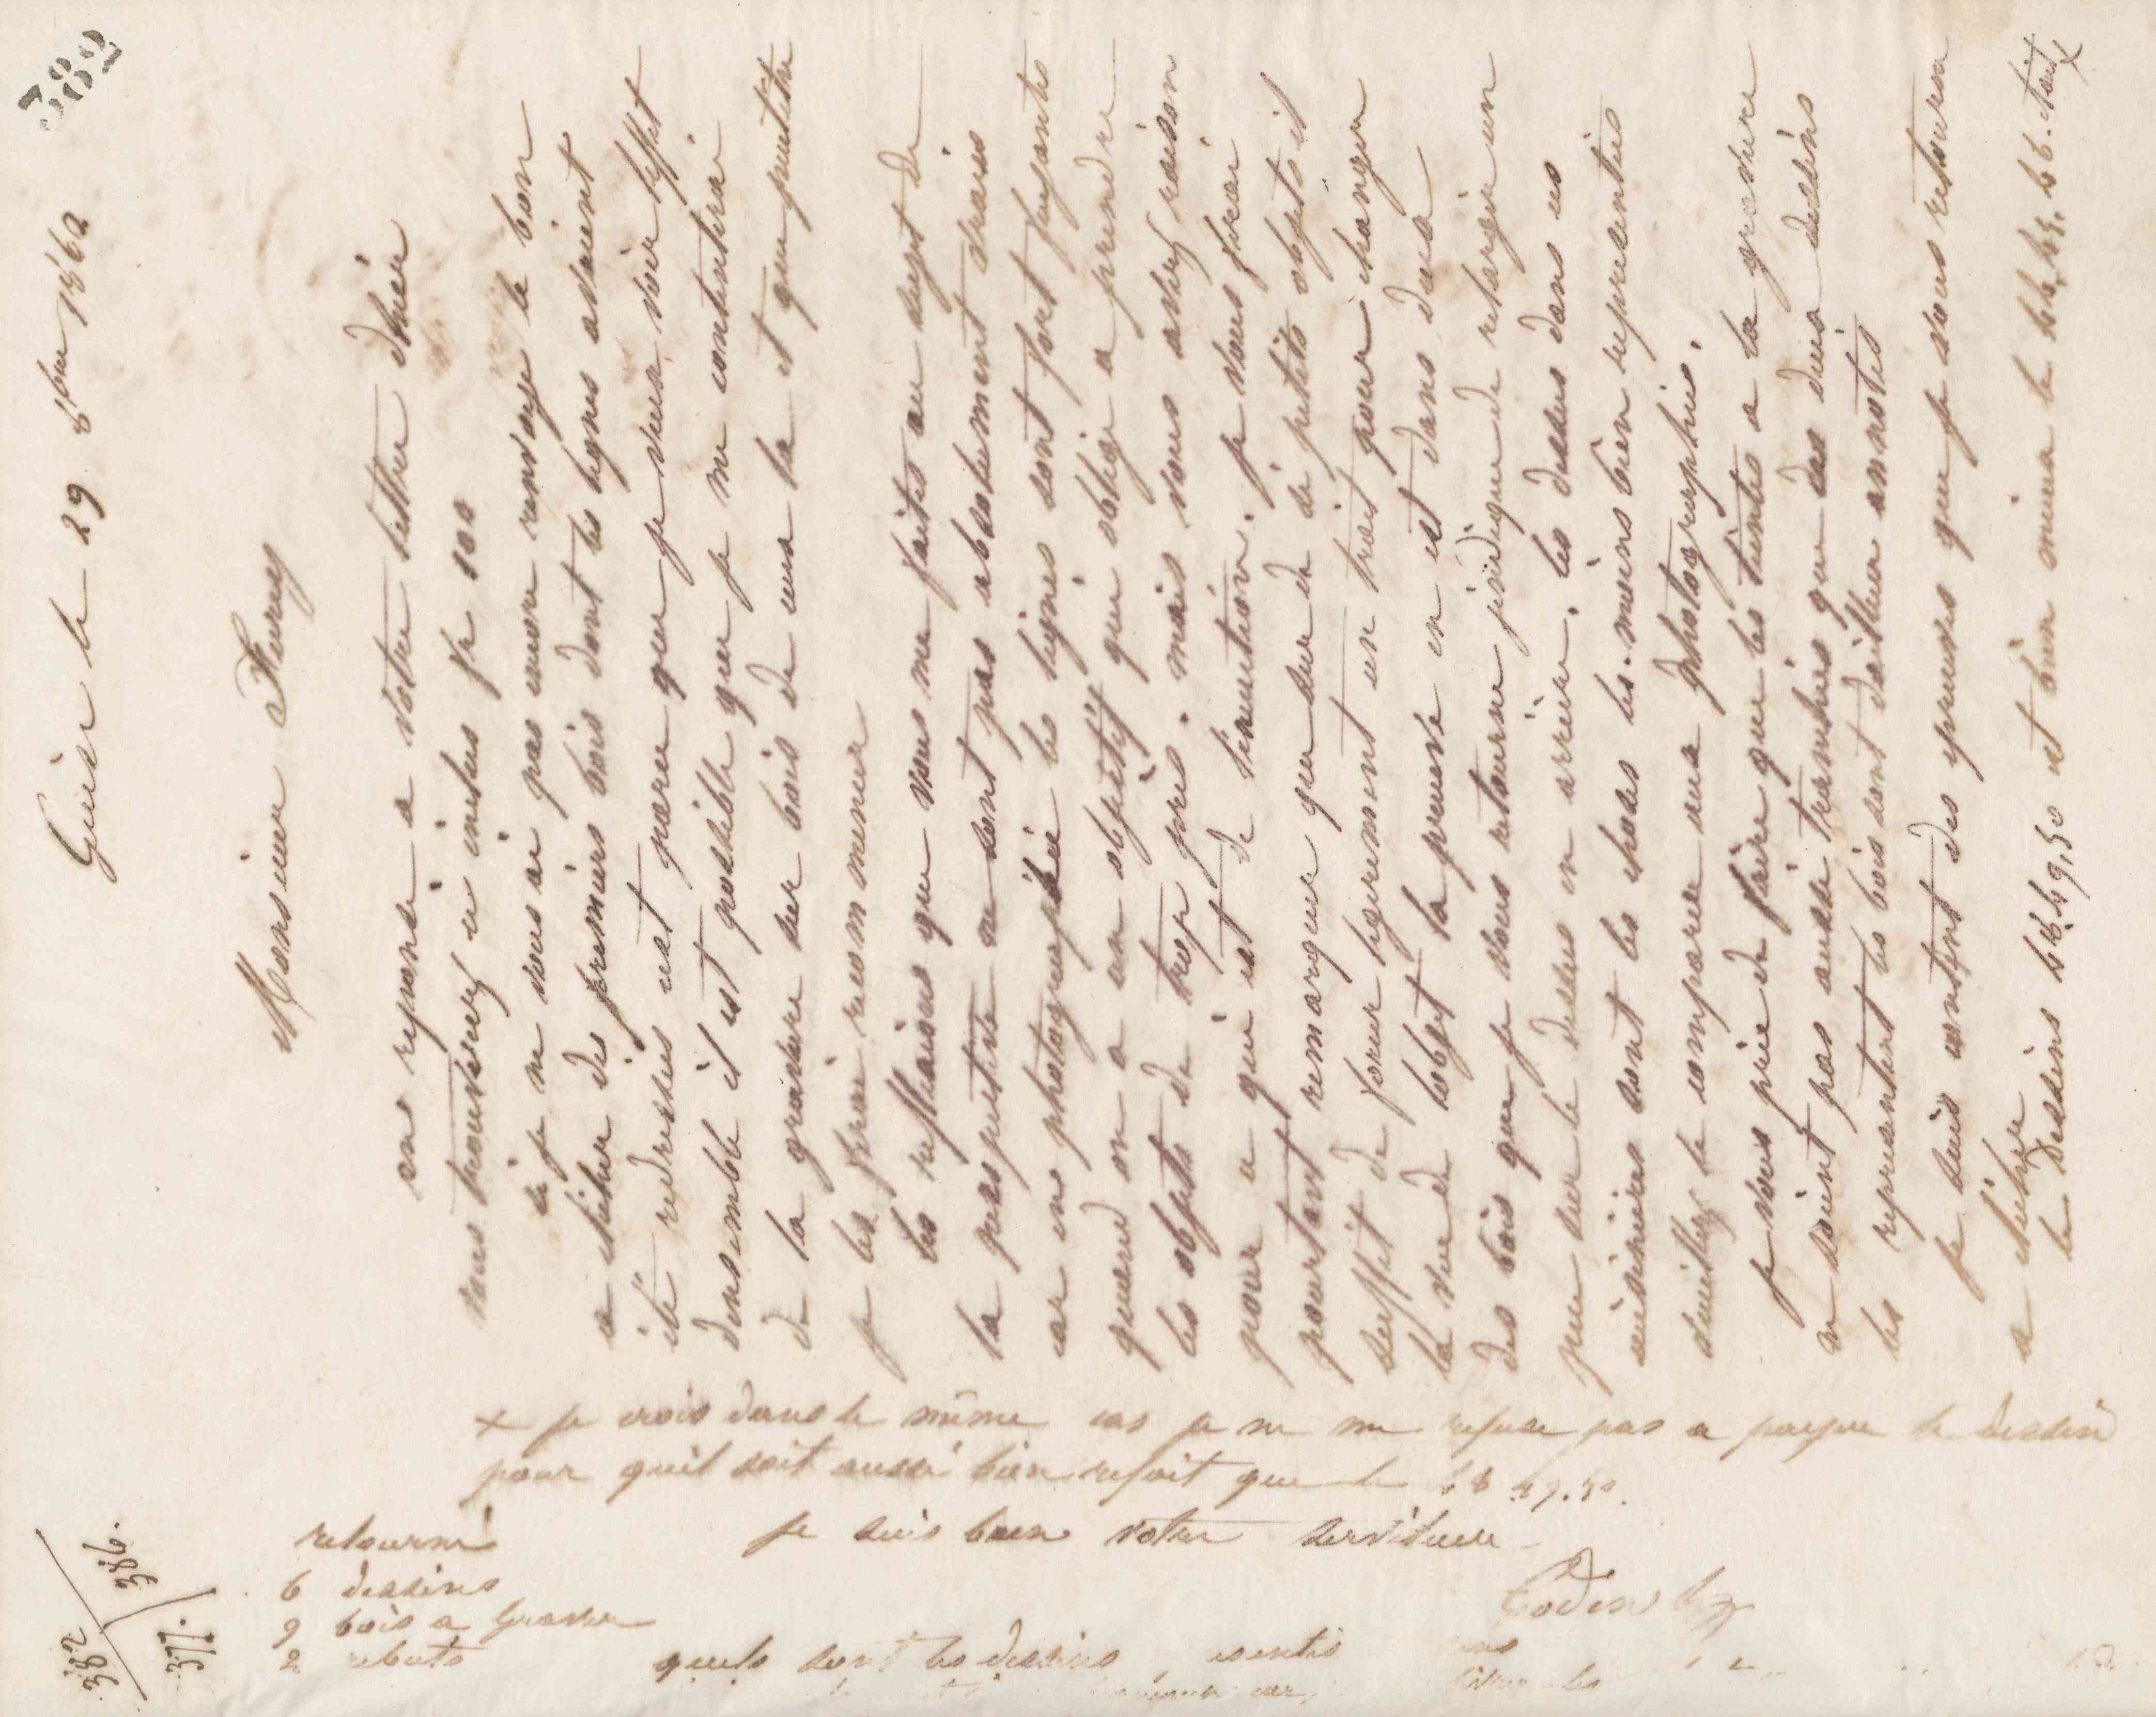 382
Guise le 29 8bre 1862
Monsieur Ferrey
en reponse a votre lettre d'hier
vous trouverez ci inclus fr 100
si je ne vous ai pas encore renvoyé le bon
a clicher des premiers bois dont les lignes avaient
été redressées cest parce que je veux voir leffet
densemble il est possible que je me contentrai
de la gravure sur bois de ceux la et que peutetre
je les ferai recommencer
les reflexions que vous me faites au sujet de
la perspective ne sont pas absolument vraies
car en photographie les lignes sont fort fuyantes
quand on a un objectif qui oblige a prendre
les objets de trop près. mais vous avez raison
pour ce qui est de lexecution. je vous ferai
pourtant remarquer que sur de si petits objets il
suffit de forcer legerement un trait pour changer
la vue de lobjet la preuve en est dans deux
des bois que je vous retourne jindique de relargir un
peu sur le dessus en arriere. les dessus dans ces
cuisinieres sont les choses les moins bien representées
veuillez le comparer aux photographies.
je vous prie de faire que les teintes a la gravure
ne soient pas aussi tranchées que sur deux dessins
les representant les bois sont dailleur annotés
je suis content des epreuves que je vous retourne
a clicher
le dessins 48.49,50 est bien mieux le 44,45,46. etait x
x je crois dans le même cas je ne me refuse pas a payer le dessin
pour quil soit aussi bien refait que le 48 49.50.
je suis bien votre serviteur
Godin
retourné
6 dessins
9 bois a Graver
2 rebuts
quels sont les dessins
382
386.
377.